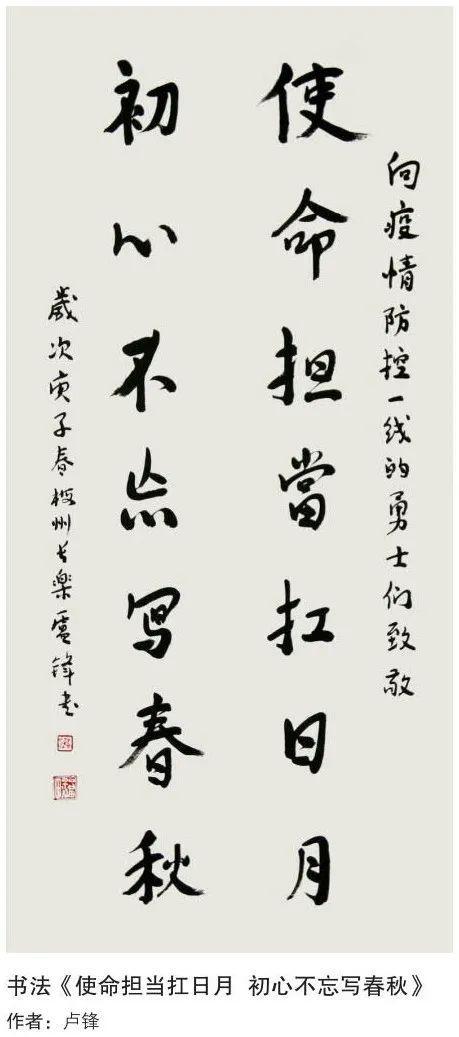 向疫情防控一线的勇士们致敬
使命担當扛日月
初心不忘写春秋
歲次庚子春梅州长楽盧锋书
书法《使命担当扛日月 初心不忘写春秋》
作者：卢锋